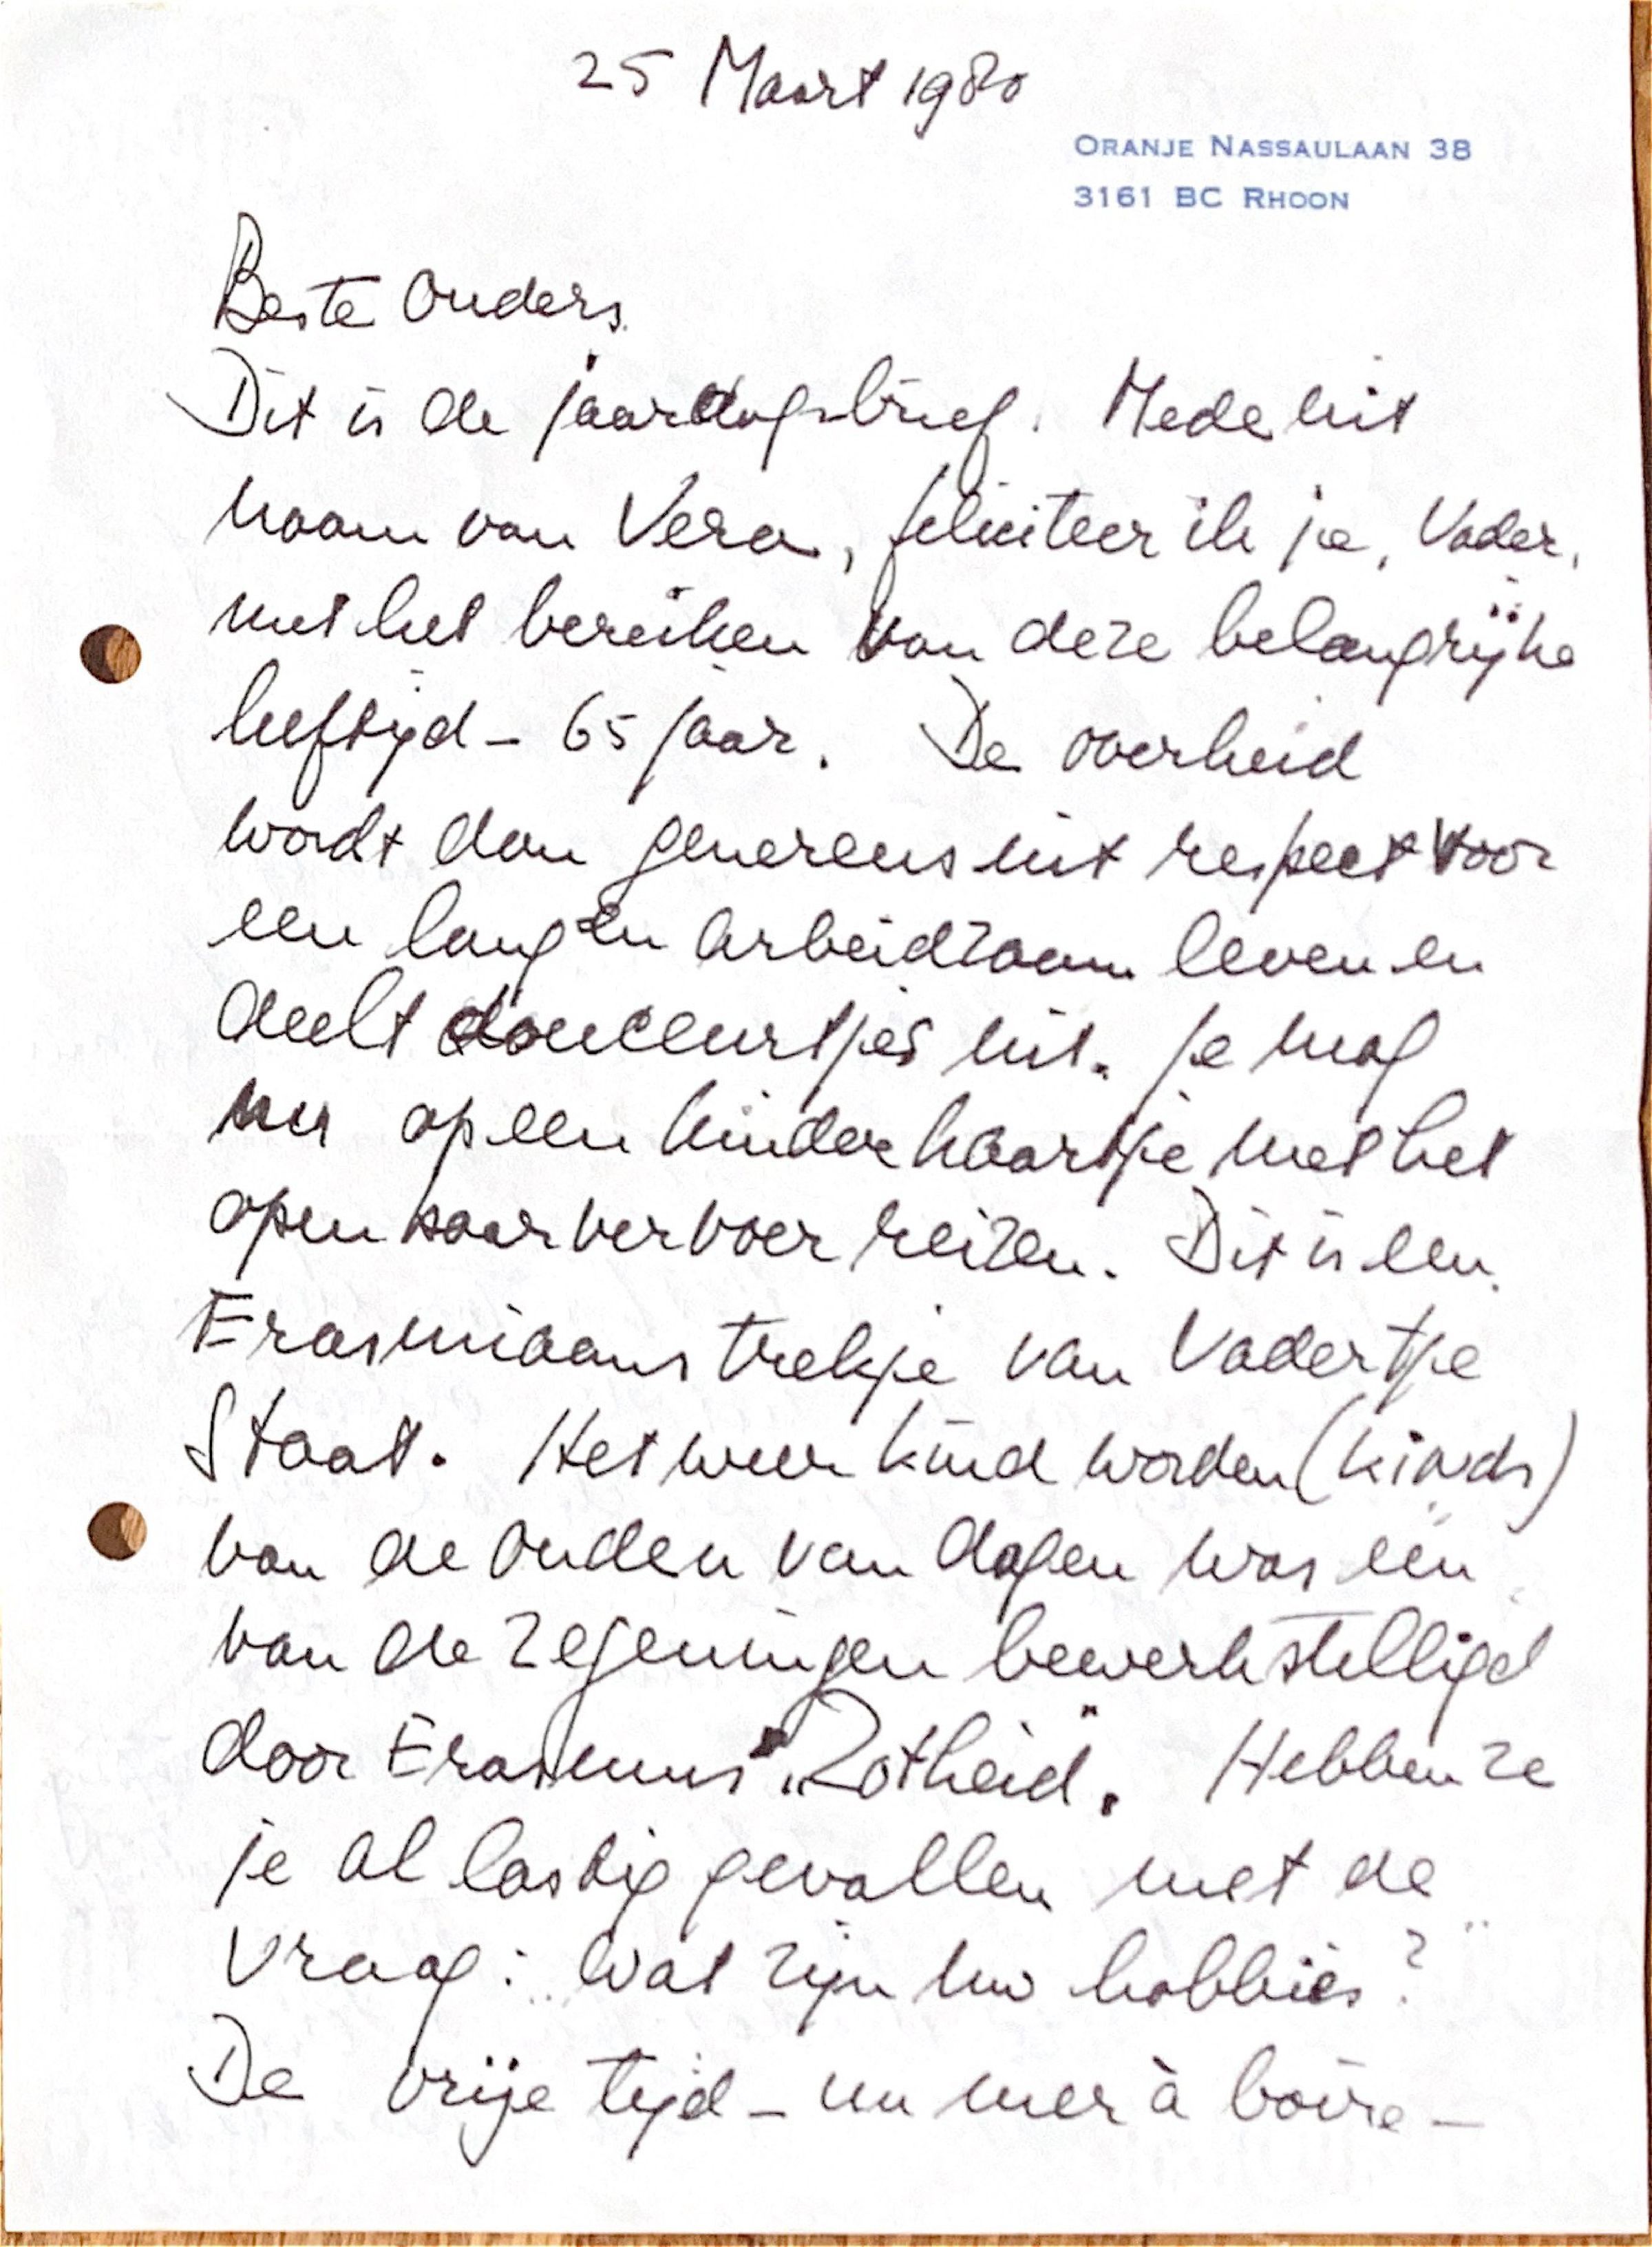 25 Maart 1980
ORANJE NASSAULAAN 38
3161 BC RHOON
Beste Ouders.
Dit is de jaardagsbrief. Mede uit
naam van Vera, feliciteer ik je, Vader,
met het bereiken van deze belangrijke
leeftijd – 65 jaar. De overheid
wordt dan genereus uit respect voor
een lang en arbeidzaam leven en
deelt douceurtjes uit. Je mag
nu op een kinderkaartje met het
openbaar vervoer reizen. Dit is een
Erasmiaans trekje van Vadertje
Staat. Het weer kind worden (kinds)
van de ouden van dagen was één
van de zegeningen bewerkstelligd
door Erasmus' „Zotheid". Hebben ze
je al lastig gevallen met de
vraag: „Wat zijn uw hobbies?"
De vrije tijd – un mer à boire –